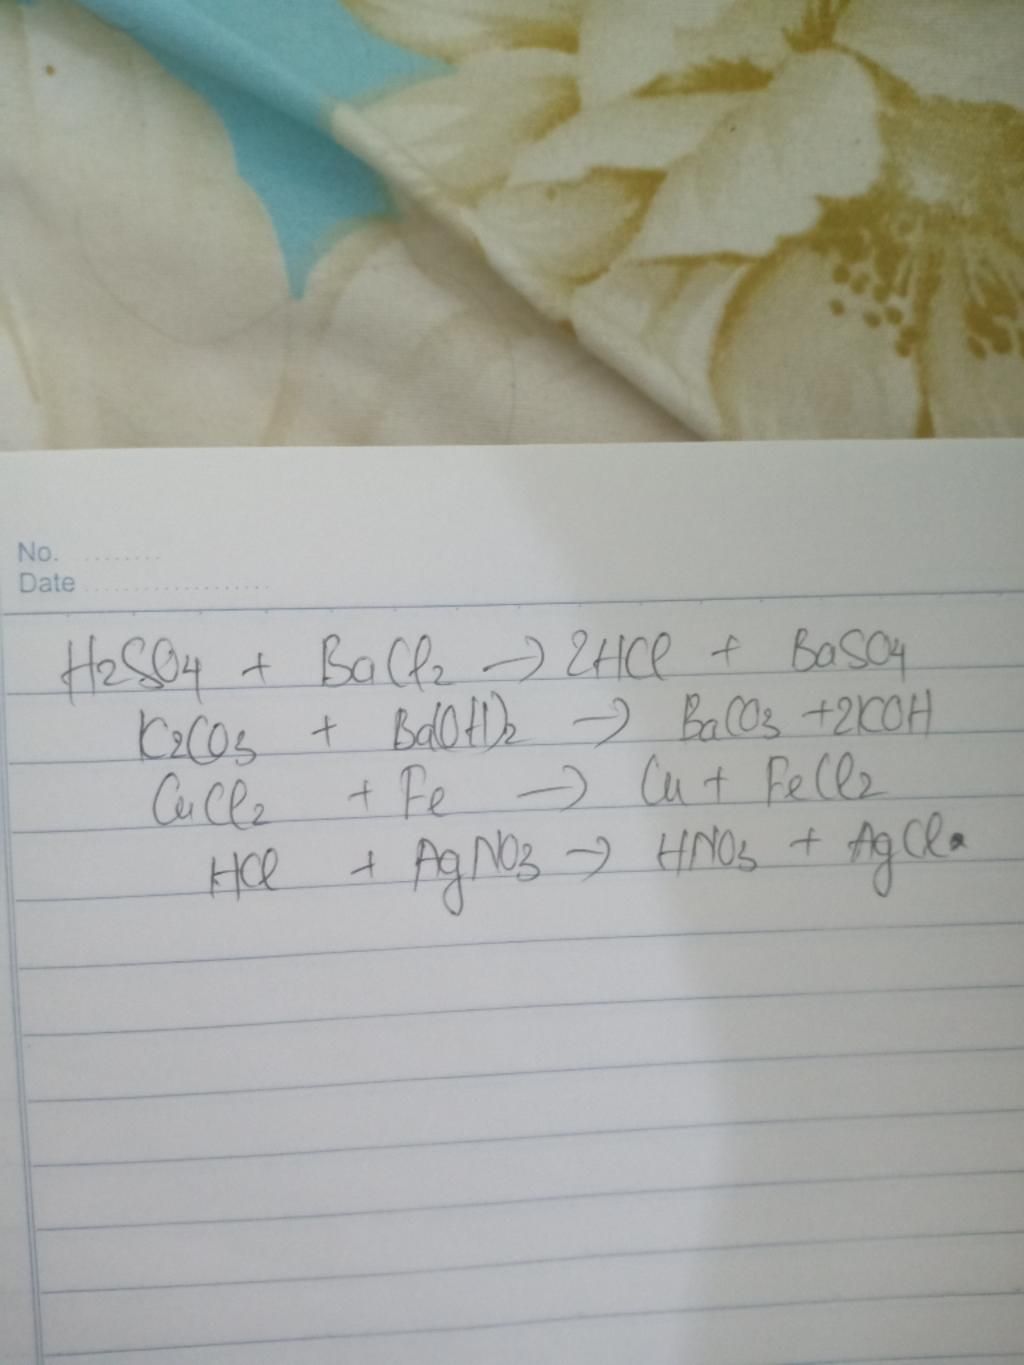 No. ..........
Date ....................
H2SO4 + BaCl2 → 2HCl + BaSO4
K2CO3 + Ba(OH)2 → BaCO3 + 2KOH
CuCl2 + Fe → Cu + FeCl2
HCl + AgNO3 → HNO3 + AgCl.